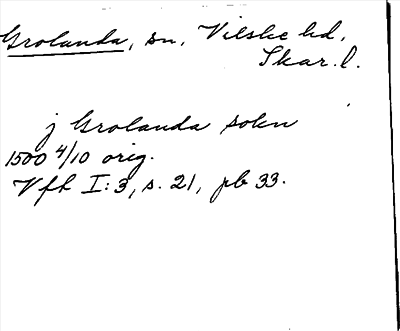 Grolanda, sn, Vilske hd,
Skar. l.
j Grolanda sokn
1500 4/10 orig.
Vfh I:3, s. 21, pb 33.